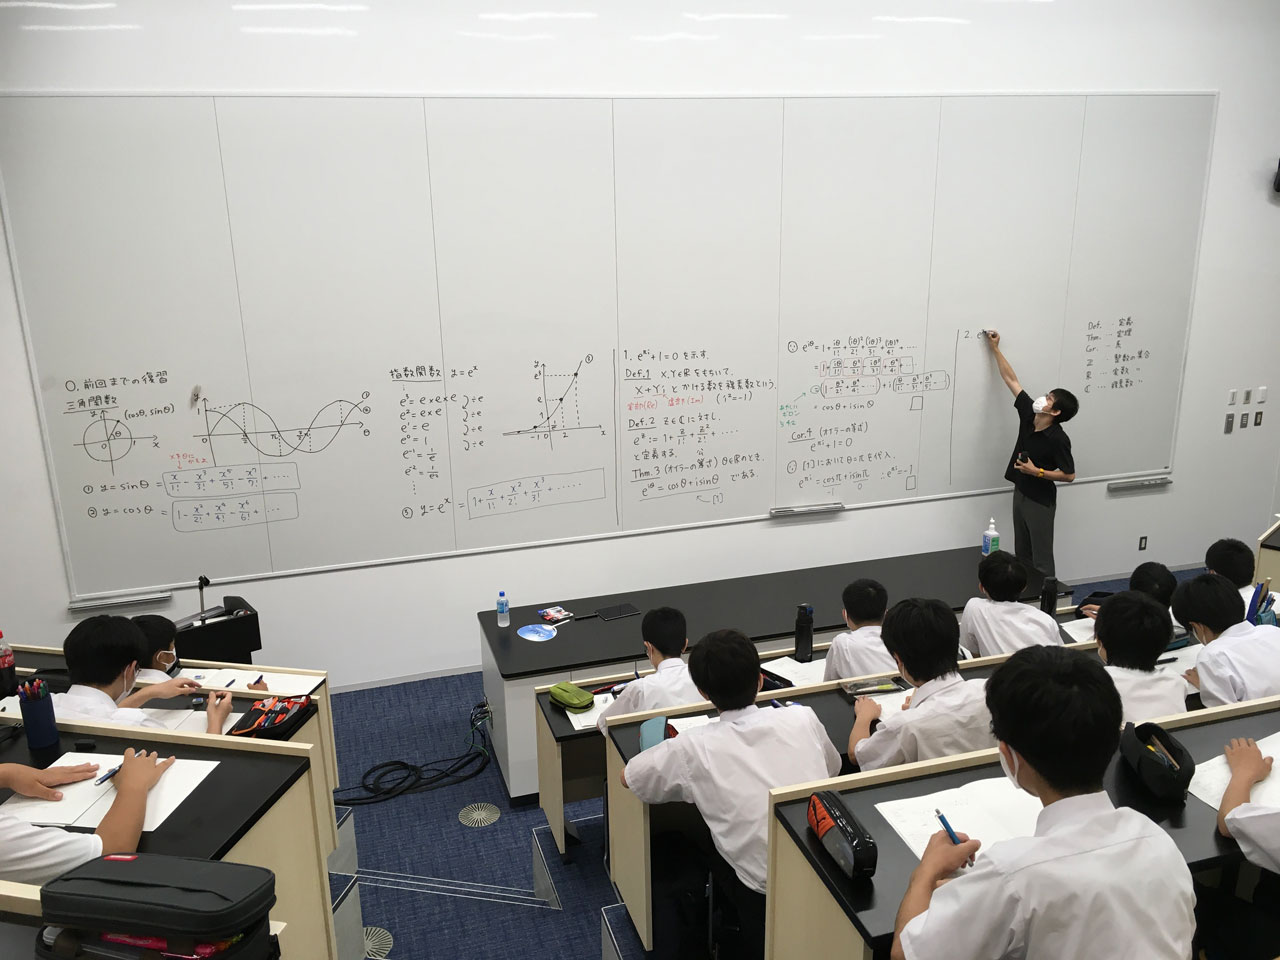 0. 前回までの復習
三角関数
y
(cosθ, sinθ)
θ
1
x
y
1
π/2
π
3/2π
θ
①
②
① y = sinθ = x/1! - x³/3! + x⁵/5! - x⁷/7! + ・・・・
② y = cosθ = 1 - x²/2! + x⁴/4! - x⁶/6! + ・・・
指数関数 y = eˣ
e³ = e×e×e
e² = e×e
e¹ = e
e⁰ = 1
e⁻¹ = 1/e
e⁻² = 1/e²
÷e
÷e
÷e
÷e
③ y = eˣ = 1 + x/1! + x²/2! + x³/3! + ・・・・
y
③
e
1
-1 0
2
x
1. e^{πi} + 1 = 0 を示す.
Def. 1 X, Y ∈ ℝ をもちいて,
X + Yi とかける数を複素数という.
(i² = -1)
Def. 2 z ∈ ℂ に対し,
e^z := 1 + z/1! + z²/2! + ・・・・
と定義する.
Thm. 3 (オイラーの等式) θ ∈ ℝ のとき,
e^{iθ} = cosθ + i sinθ である.
[1]
∵ e^{iθ} = 1 + iθ/1! + (iθ)²/2! + (iθ)³/3! + (iθ)⁴/4! + ・・・
= cosθ + i sinθ □
Cor. 4 (オイラーの等式)
e^{πi} + 1 = 0
∵ [1] において θ = π を代入,
e^{πi} = cosπ + i sinπ ∴ e^{πi} = -1
-1
0
□
2. e
Def. … 定義
Thm. … 定理
ℤ … 整数の集合
ℝ … 実数 〃
ℂ … 複素数 〃